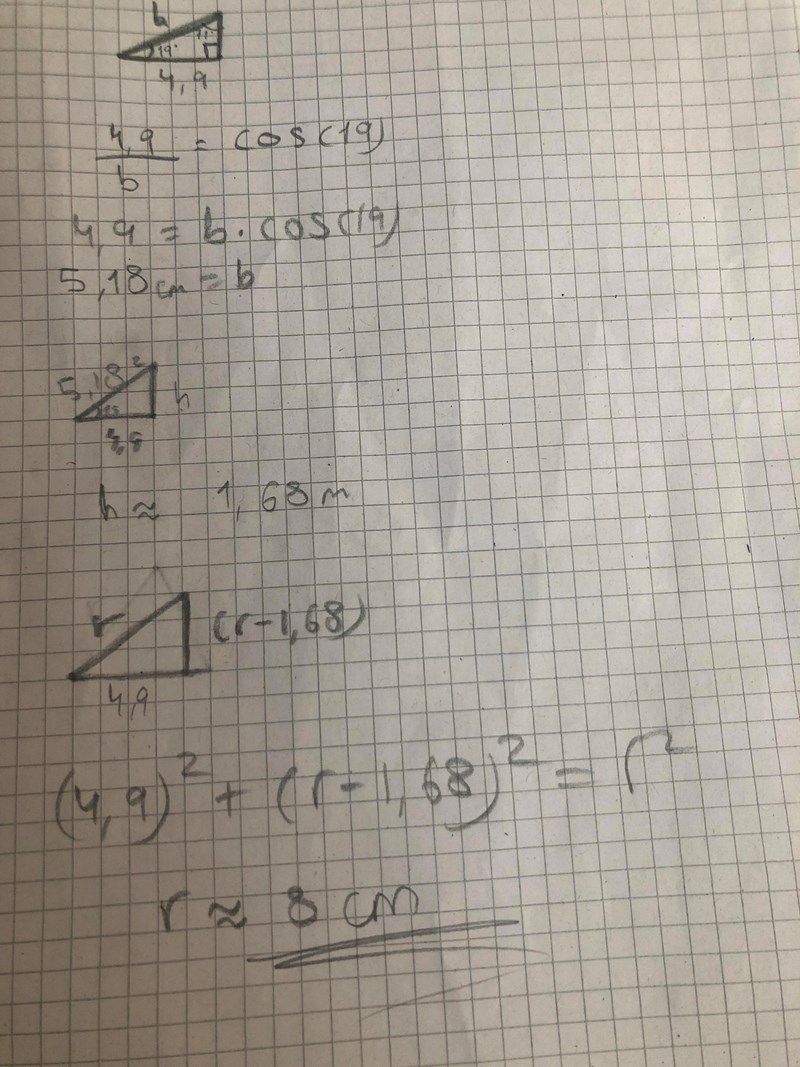 b
19°
4,9
4,9 / b = cos(19)
4,9 = b · cos(19)
5,18 cm = b
5,18 h
h ≈ 1,68 m
r (r-1,68)
4,9
(4,9)² + (r-1,68)² = r²
r ≈ 8 cm